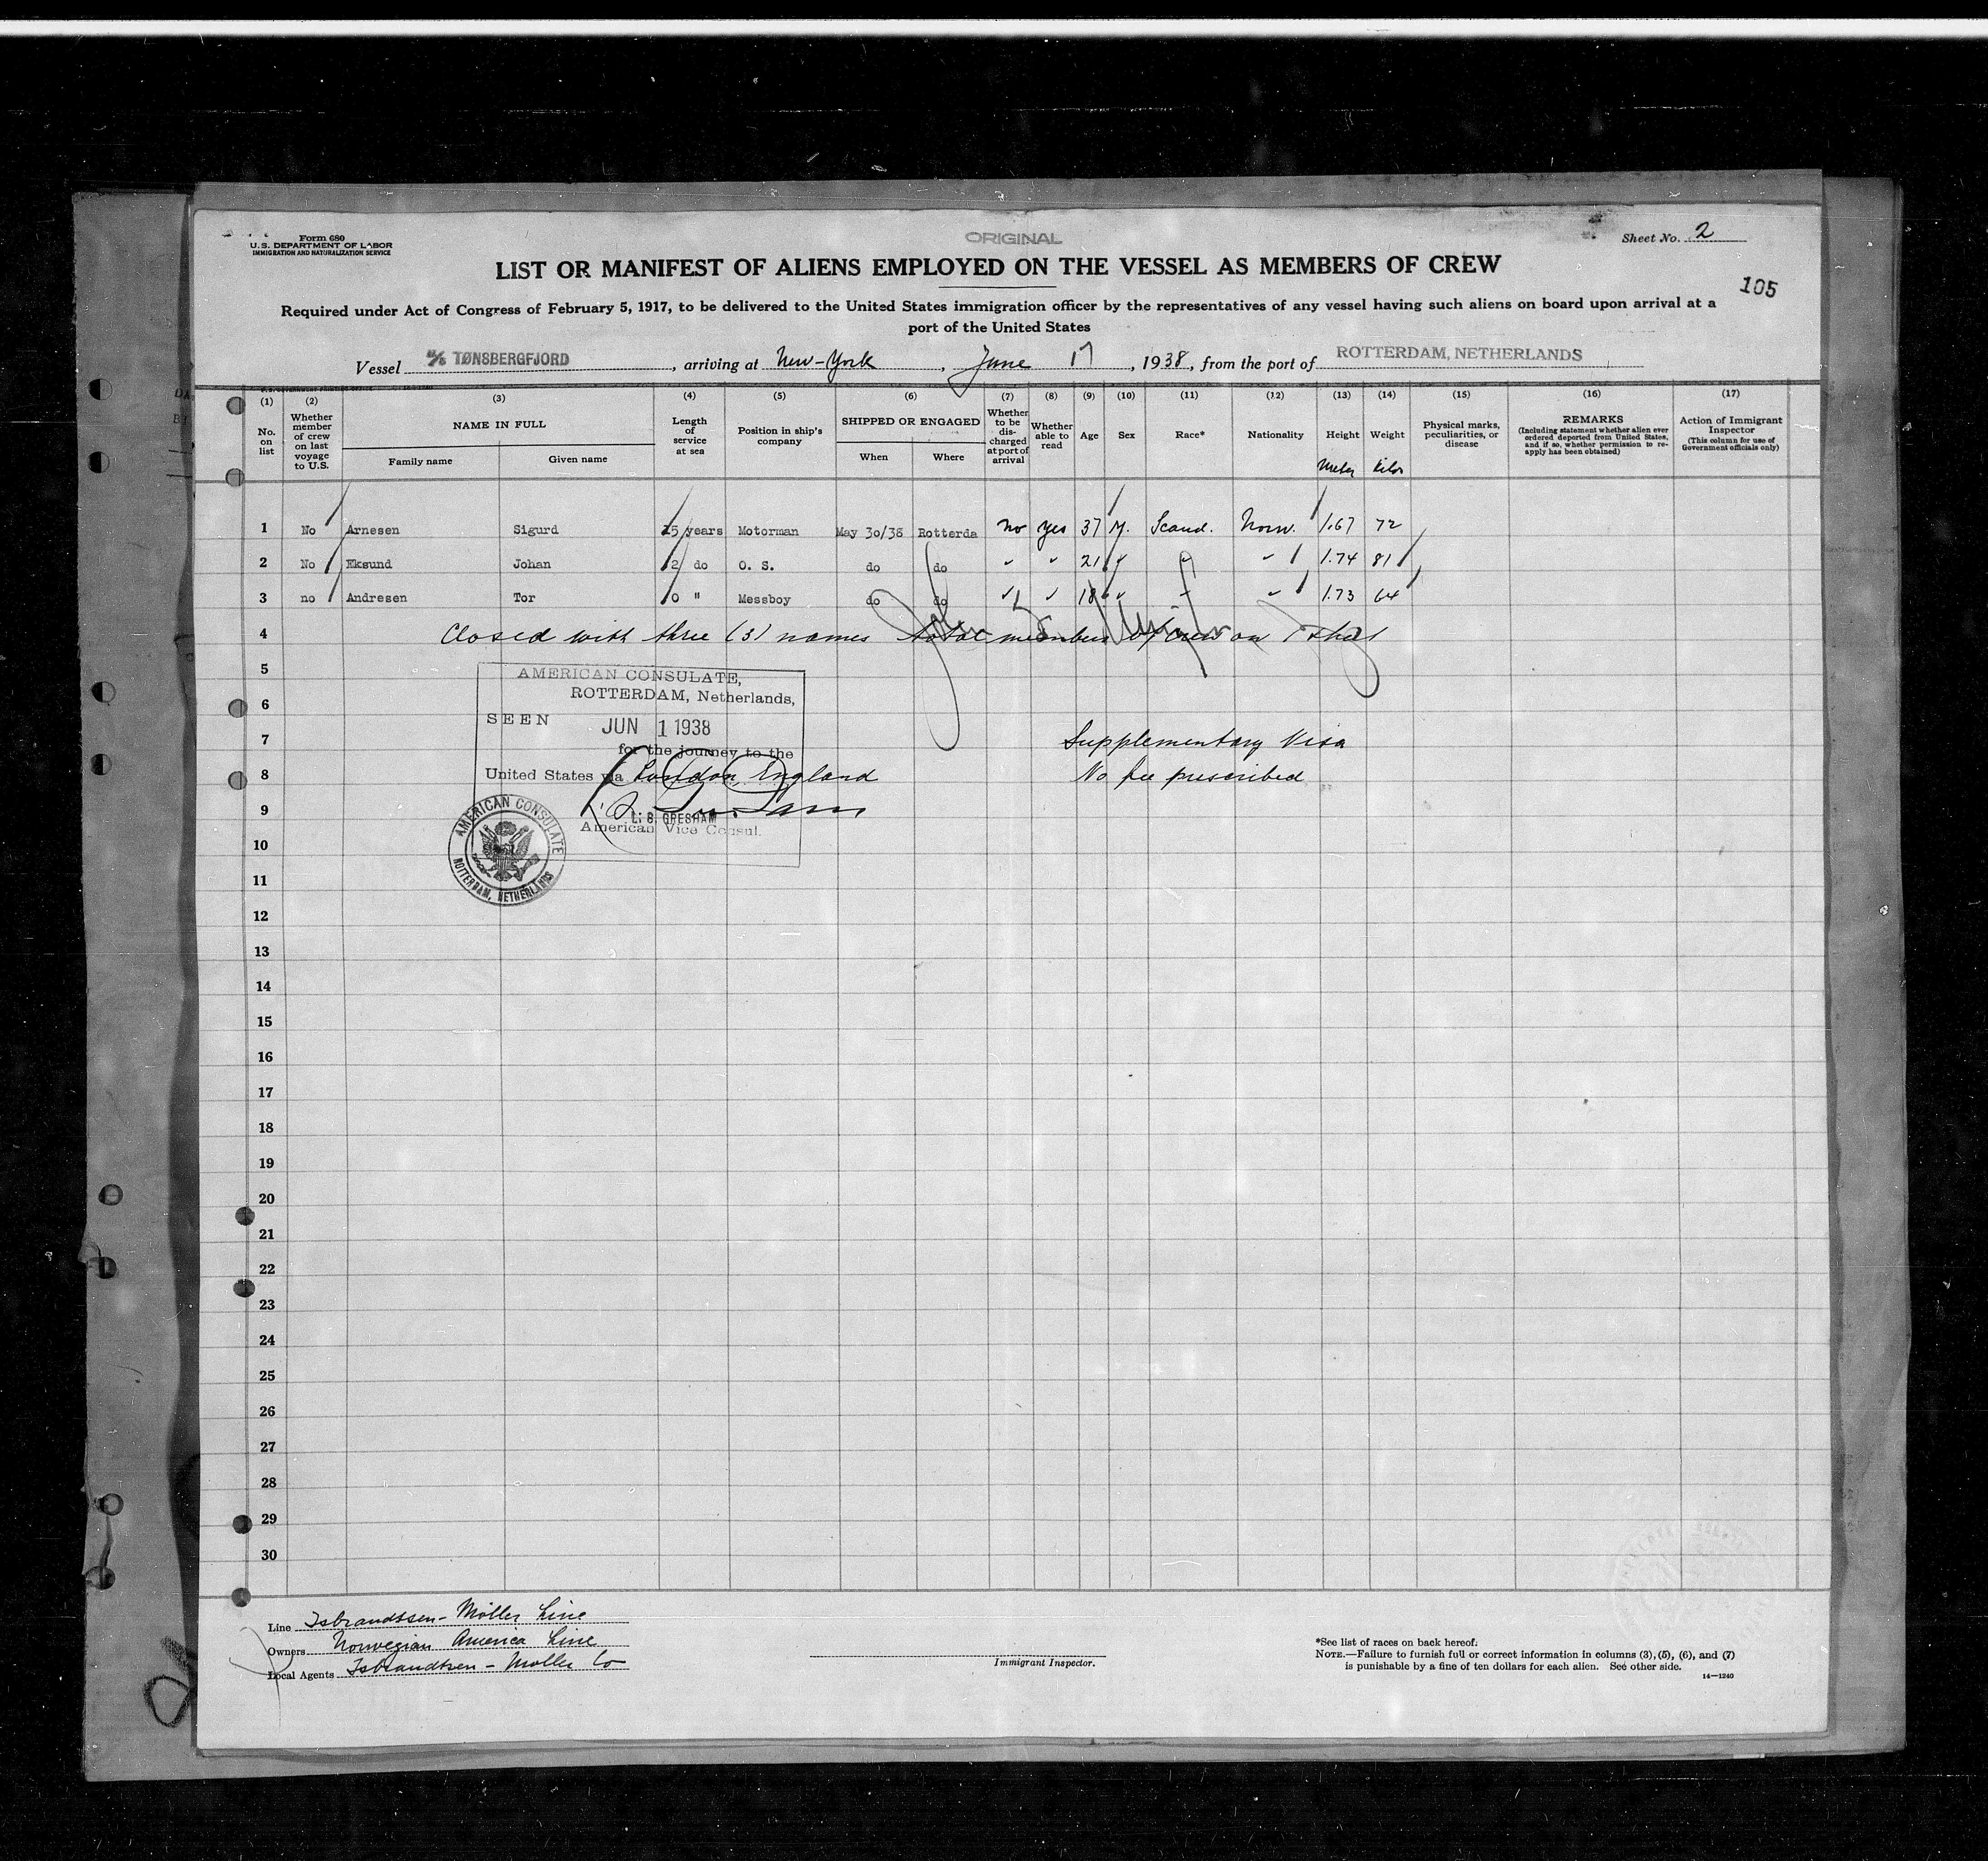 Form 680
U.S. DEPARTMENT OF LABOR
IMMIGRATION AND NATURALIZATION SERVICE
ORIGINAL
Sheet No. 2
LIST OR MANIFEST OF ALIENS EMPLOYED ON THE VESSEL AS MEMBERS OF CREW
105
Required under Act of Congress of February 5, 1917, to be delivered to the United States immigration officer by the representatives of any vessel having such aliens on board upon arrival at a
port of the United States
Vessel M/S TØNSBERGFJORD, arriving at New-York, June 17, 1938, from the port of ROTTERDAM, NETHERLANDS
(1) No. on list
(2) Whether member of crew on last voyage to U.S.
(3) NAME IN FULL Family name Given name
(4) Length of service at sea
(5) Position in ship's company
(6) SHIPPED OR ENGAGED When Where
(7) Whether to be discharged at port of arrival
(8) Whether able to read
(9) Age
(10) Sex
(11) Race*
(12) Nationality
(13) Height Meter
(14) Weight Kilos
(15) Physical marks, peculiarities, or disease
(16) REMARKS (Including statement whether alien ever ordered deported from United States, and if so, whether permission to reapply has been obtained)
(17) Action of Immigrant Inspector (This column for use of Government officials only)
1 No Arnesen Sigurd 15 years Motorman May 30/38 Rotterda no yes 37 M. Scand. Norw. 1.67 72
2 No Eksund Johan 2 do O. S. do do " " 21 " " " 1.74 81
3 no Andresen Tor 0 " Messboy do do " " 18 " " " 1.73 64
4 Closed with three (3) names total members of crew on
5
AMERICAN CONSULATE,
ROTTERDAM, Netherlands,
6
SEEN JUN 1 1938
7
for the journey to the
Supplementary Visa
8
United States via London, England
No fee prescribed
9
L. S. GRESHAM
American Vice Consul.
AMERICAN CONSULATE
ROTTERDAM, NETHERLANDS
10
11
12
13
14
15
16
17
18
19
20
21
22
23
24
25
26
27
28
29
30
Line Isbrandtsen-Moller Line
Owners Norwegian America Line
Local Agents Isbrandtsen-Moller Co
Immigrant Inspector.
*See list of races on back hereof.
NOTE.—Failure to furnish full or correct information in columns (3), (5), (6), and (7)
is punishable by a fine of ten dollars for each alien. See other side.
14—1240